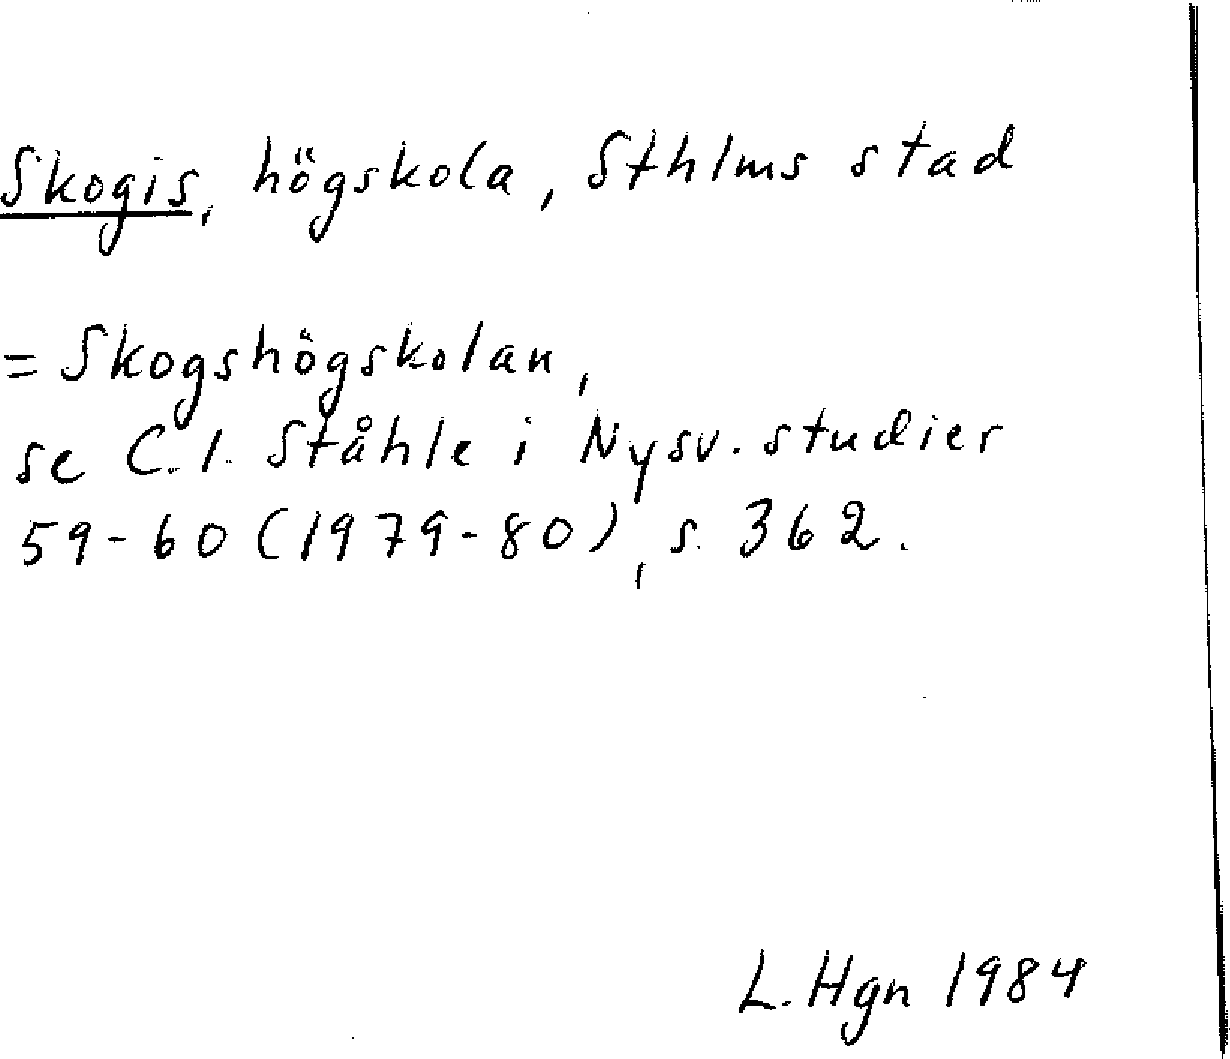 Skogis, högskola, Sthlms stad
= Skogshögskolan,
se C.I. Ståhle i Nysv. studier
59-60 (1979-80), s. 362.
L. Hgn 1984